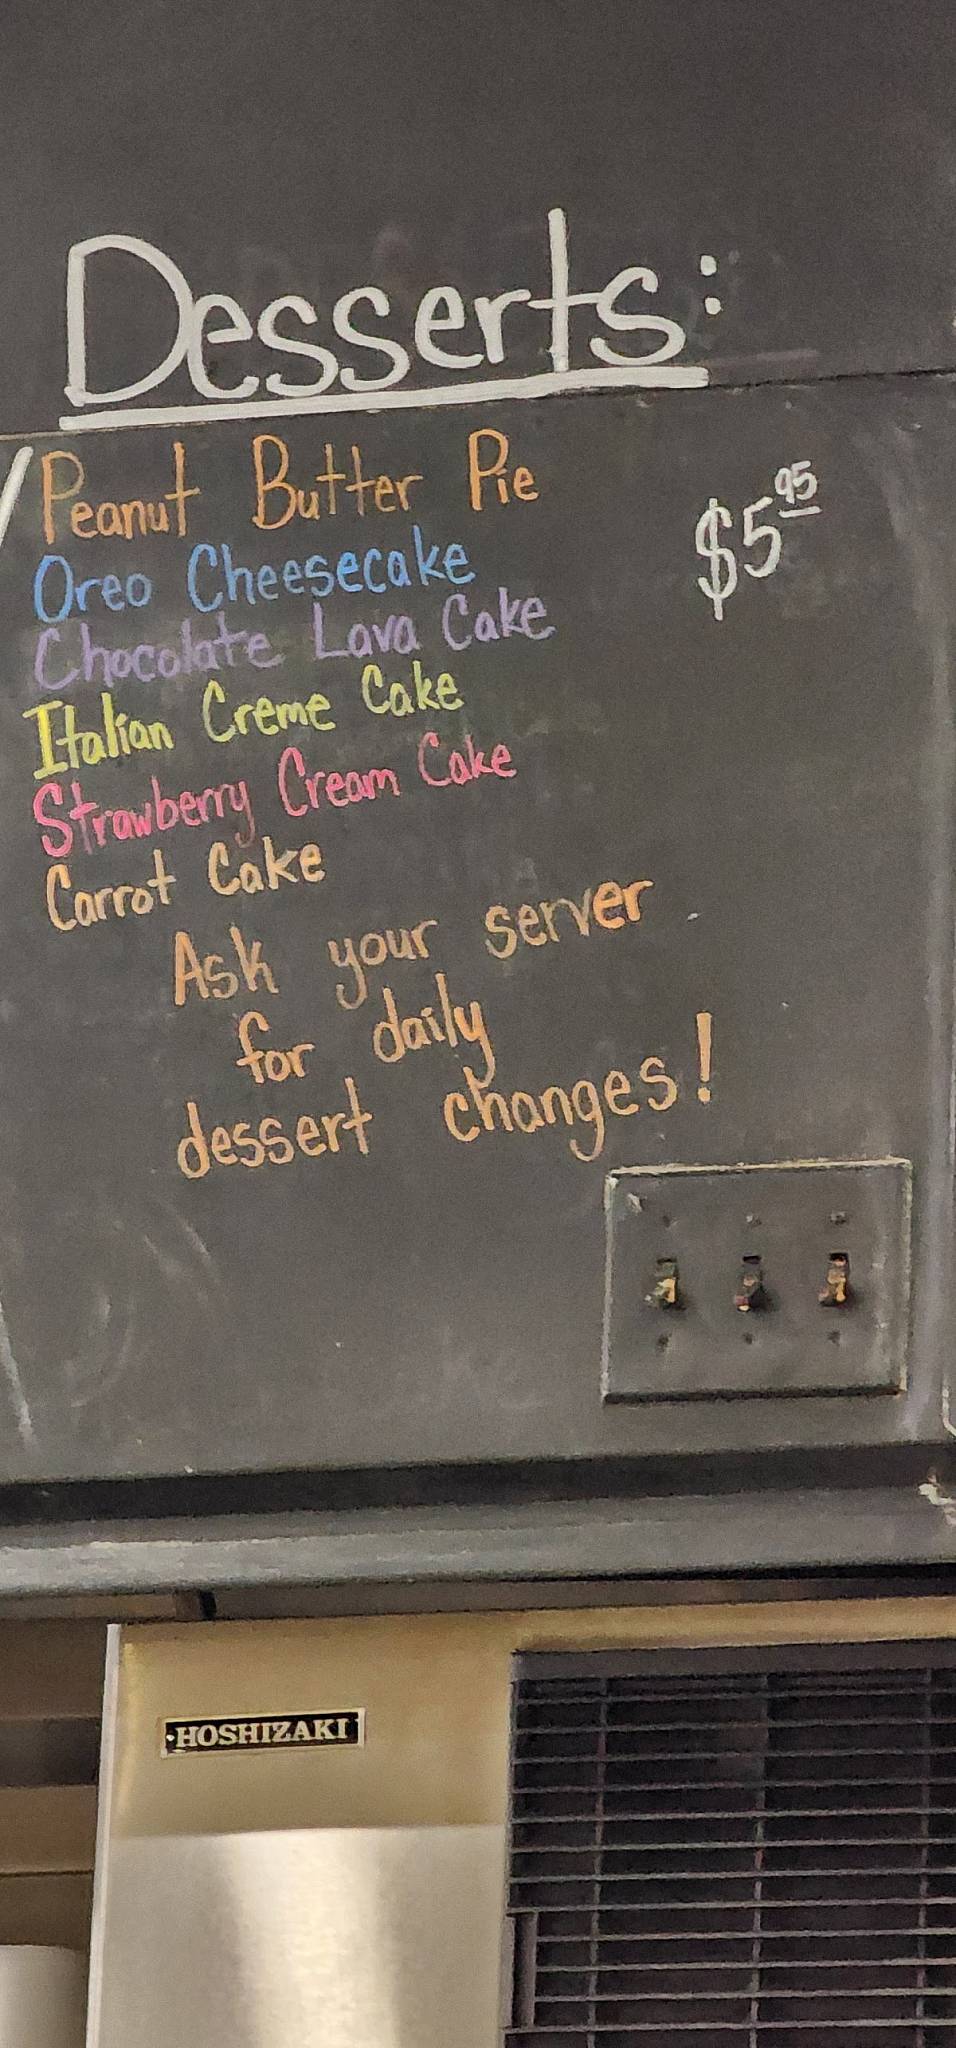 Desserts:
Peanut Butter Pie $5 95
Oreo Cheesecake
Chocolate Lava Cake
Italian Creme Cake
Strawberry Cream Cake
Carrot Cake
Ask your server
for daily
dessert changes!
HOSHIZAKI